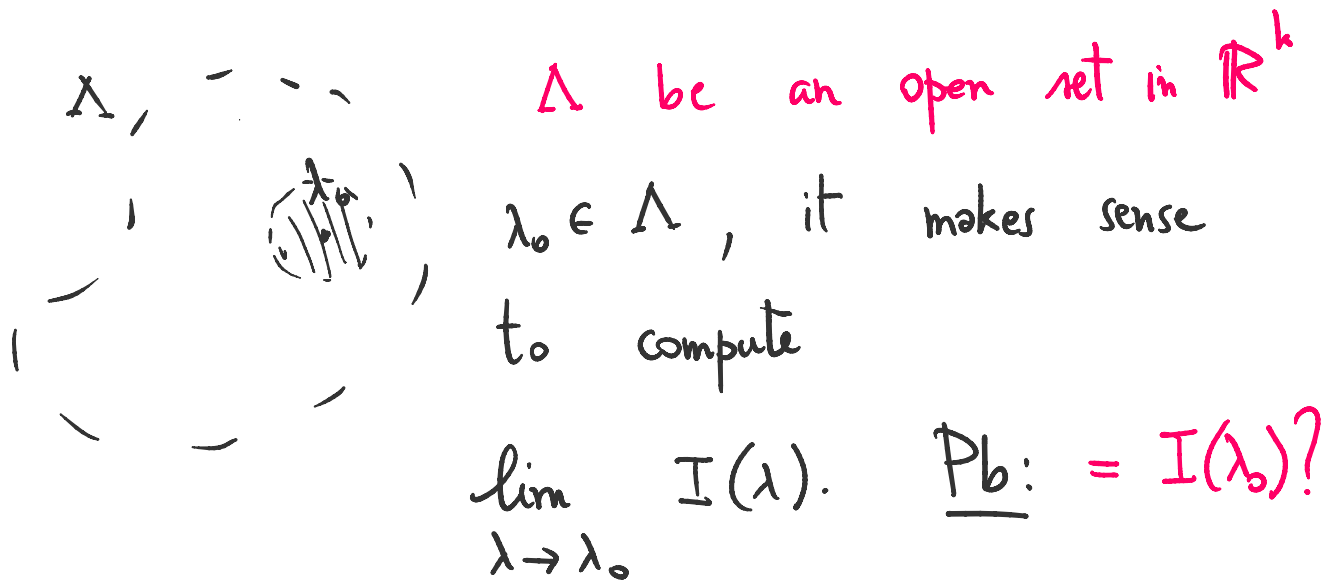 Λ
Λ be an open set in ℝ^k
λ₀
λ₀ ∈ Λ, it makes sense
to compute
lim I(λ). Pb: = I(λ₀)?
λ → λ₀